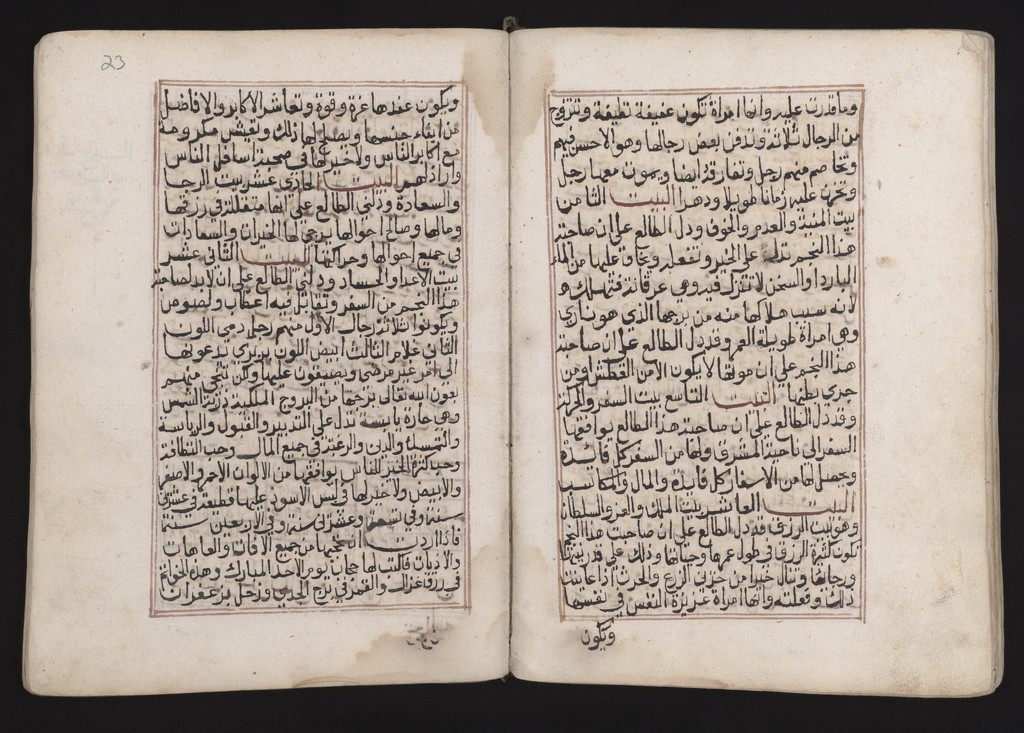 وما قدرت عليه وانها امراة تكون عفيفة نظيفة وتتزوج
من الرجال ثلاثة وتدفن بعض رجالها وهو الاحسن فيهم
وتخاصم منهم رجل وتفارقه ايضا ويموت معها رجل
وتحزن عليه زمانا طويلا ودهرا البيت الثامن
بيت المنية والعدم والخوف ودل الطالع على ان صاحبة
هذا النجم تدل على الخير وتفعله ويخاف عليها من الماء
البارد او السخن لا تنزل فيه وهي عرقانة فتهلك
لانه سبب هلاكها منه من برجها الذي هو ناري
وهي امراة طويلة العمر وقد دل الطالع على ان صاحبة
هذا النجم على ان موتها لا يكون الا من العطش او من
جري بطنها البيت التاسع بيت السفر والحركة
وقد دل الطالع على ان صاحبة هذا الطالع يوافقها
السفر الى ناحية المشرق ولها من السفر كل فائدة
ويحصل لها من الاسفار كل فايدة والمال والمكاسب
البيت العاشر بيت الملك والعز والسلطان
وهو بيت الرزق فقد دل الطالع على ان صاحبت هذا النجم
تكون كثيرة الرزق في طول عمرها وحياتها وذلك على قدر
ورجابها وتنال خيرا من حزن الزرع والحرث اذا عاينت
ذلك وفعلته وانها امراة عزيزة النفس في نفسها
ويكون
23
ويكون عندها عزة وقوة وتعاشر الاكابر والافاضل
من ابناء جنسها ويصلح لها ذلك وتعيش مكرومة
مع اكابر الناس ولا خير لها في صحبة اسافل الناس
واراذلهم البيت الحادي عشر بيت الرجا
والسعادة ودلني الطالع على انها متقللة في رزقها
ومالها وصالح احوالها يرجى لها الخيرات والسعادات
في جميع احوالها وحركاتها البيت الثاني عشر
بيت الاعدا والحساد ودلني الطالع على ان لابد لصاحبة
هذا النجم من السفر وتقابل فيه اعطاب ولصوص
ويكونوا ثلاثة رجال الاول منهم رجل دمي اللون
الثاني غلام الثالث ابيض اللون بربري يدعو بها
الى امر غير مرضي ويضيقون عليها ولكن تنجى منهم
بعون الله تعالى برجها من البروج الملكية برزت الشمس
وهي حارة يابسة تدل على التدبير والقبول والرياسة
والتمسك والدين والرغبة في جميع المال وحب النظافة
وحب كثرة الخير للناس يوافقها من الالوان الاحمر والاصفر
والابيض ولا خير لها في لبس الاسود عليها قطيعة في عشرين
سنة وفي تسعة وعشرين سنة وفي الاربعين سنة
فاذا اردت ان تنجيها من جميع الافات والعاهات
والاذيات فاكتب لها حجاب يوم الاحد المبارك وهذه الخواتم
في رق غزال والقمر في برج الجدي وزحل بزعفران